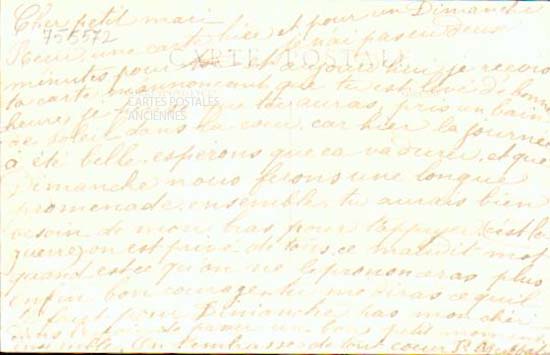 Cher petit mari
755572
Reçu une carte hier et pour un Dimanche
je n'ai pas eu deux
CARTE POSTALE
minutes pour et aujourd'hui je reçois
ta carte m'annonçant que tu est levé de bonne
heure, je que tu auras pris un bain
CARTES POSTALES
ANCIENNES
de soleil dans la cour, car hier la journée
a été belle, espérons que ca va durer, et que
Dimanche nous ferons une longue
promenade ensemble, tu aurais bien
besoin de mon bras pour t'appuyer (c'est la
guerre) on est privé de tous, ce maudit mot
quand est ce qu'on ne le prononceras plus
enfin bon courage tu me diras ce qu'il
faut pour Dimanche mon cher
un bon petit moment
ensemble. On t'embrasse de tout coeur